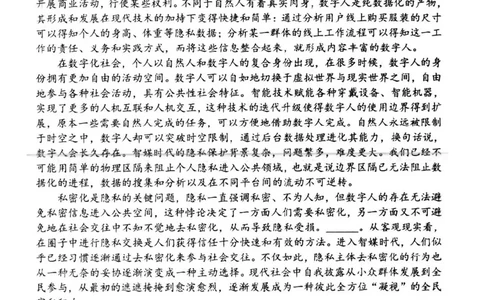 开展商业活动,行使某些权利。不同于自然人有着真实肉身,数字人是纯数据化的产物,
其形成和发展在现代技术的加持下变得快捷和简单:通过分析用户线上购买服装的尺寸
可以得知个人的身高、体重等隐私数据;分析某一群体的线上工作流程可以得知这一工
作的责任、义务和实践方式,而将这些信息整合起来,就形成内容丰富的数字人。
在数字化社会,个人以自然人和数字人的复合身份出现,在很多时候,数字人的身
份拥有更加自由的活动空间。数字人可以自如地切换于虚拟世界与现实世界之间,自由
地参与各种社会活动,具有公共性社会特征。智能技术赋能各种穿戴设备、智能机器,
实现了更多的人机互联和人机交互,这种技术的迭代升级使得数字人的使用边界得到扩
展,原本一些需要自然人完成的任务,可以方便地借助数字人完成。自然人永远被限制
于时空之中,数字人却可以突破时空限制,通过后台数据处理进化其能力,换句话说,
数字人会长久存在。智媒时代的隐私保护背景复杂,问题繁多,难度更大。我们已经不
可能用简单的物理区隔来阻止个人隐私进入公共领域,也就是说边界区隔已无法阻止数
据化的进程,数据的搜集和分析以及在不同平台间的流动不可逆转。
私密化是隐私的关键问题,隐私一直强调私密、不为人知,但数字人的存在无法避
免私密信息进入公共空间,这种悖论决定了一方面人们需要私密化,另一方面又不可避
免地在社会交往中不知不觉地去私密化,从而导致隐私受损。______。从客观现实看,
在圈子中进行隐私交换是人们获得信任十分快速和有效的方法。进入智媒时代,人们似
乎已经习惯逐渐通过去私密化来参与社会交往。不仅如此,隐私主体去私密化的行为也
从一种无奈的妥协逐渐演变成一种主动选择。现代社会中自我披露从小众群体发展到全
民参与,从最初的遮遮掩掩到愈演愈烈,逐渐发展成为一种彼此全方位“凝视”的全民